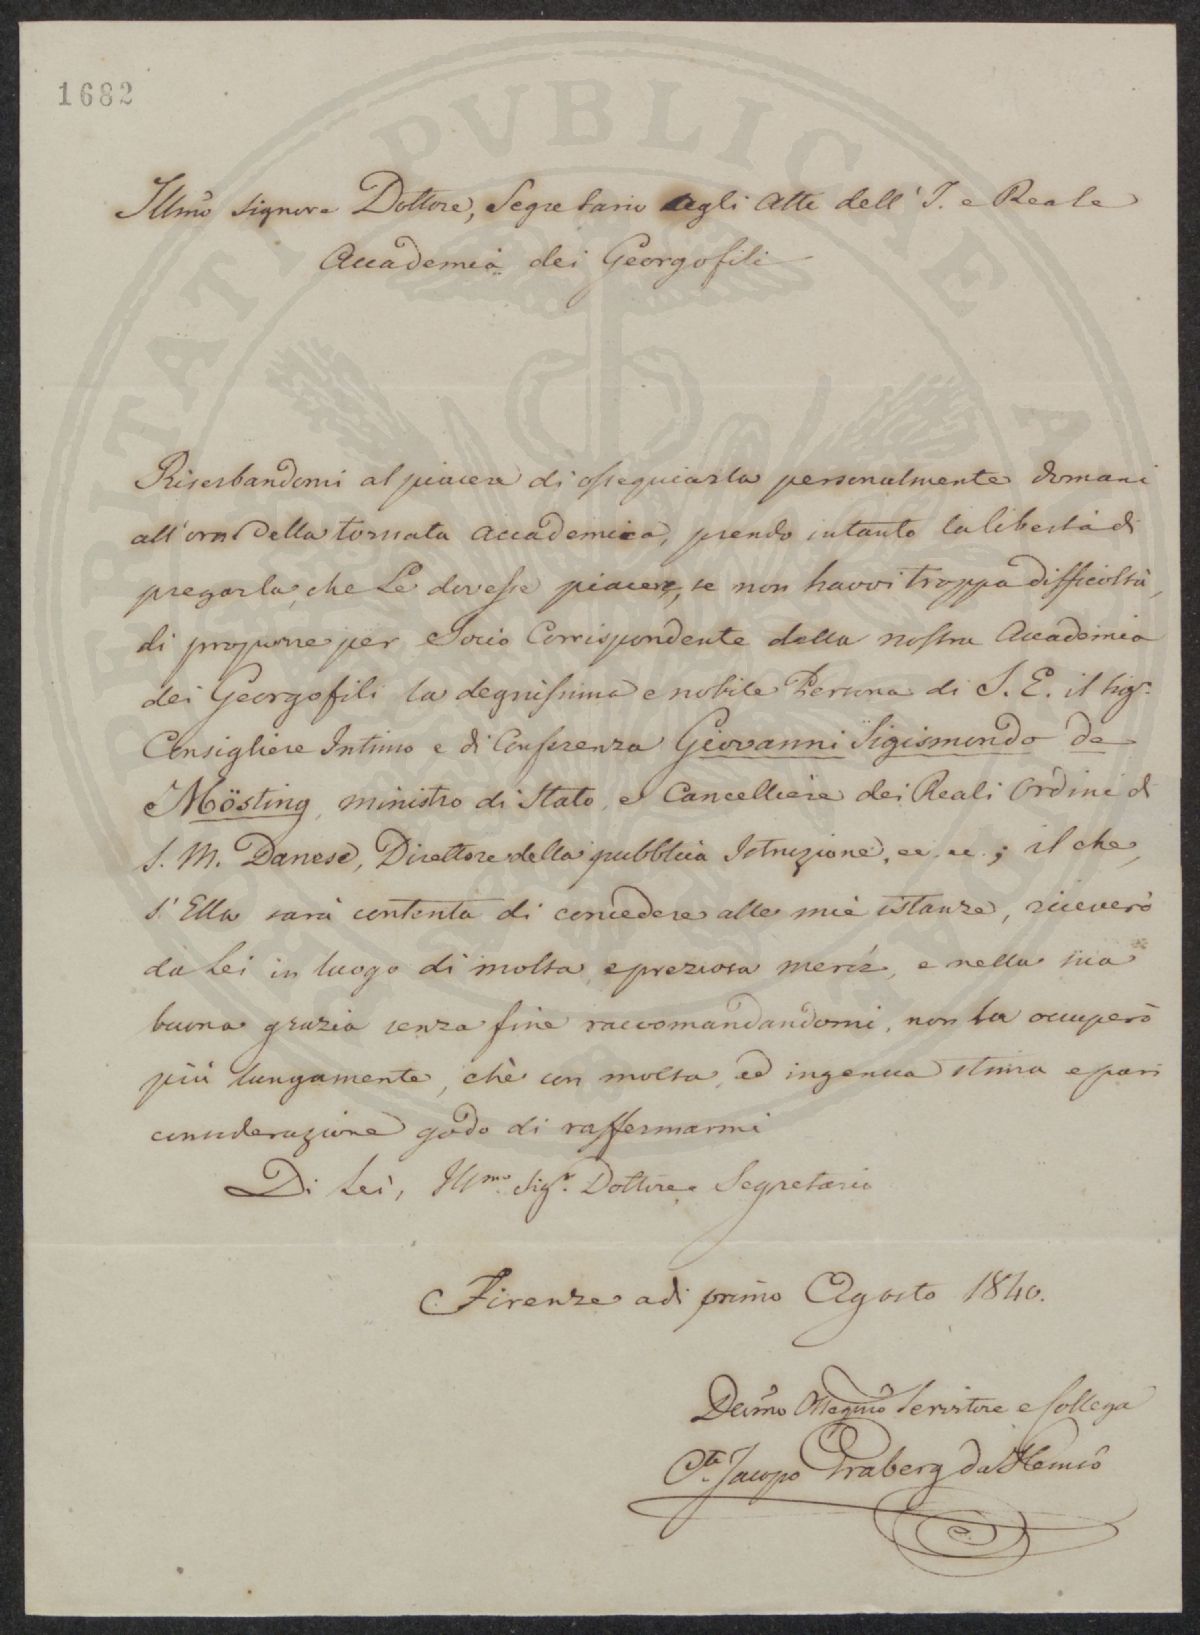 1682
Illmo Signore Dottore, Segretario degli Atti dell' I. e Reale
Accademia dei Georgofili
Riserbandomi al piacere di ossequiarla personalmente domani
all'ora della tornata accademica, prendo intanto la libertà di
pregarla, che Le dovesse piacere, se non havvi troppa difficoltà,
di proporre per Socio Corrispondente della nostra Accademia
dei Georgofili la degnissima e nobile Persona di S. E. il Sigr.
Consigliere Intimo e di Conferenza Giovanni Sigismondo de
Mösting, ministro di Stato, e Cancelliere dei Reali Ordini di
S. M. Danese, Direttore della pubblica Istruzione, ec. ec.; il che,
s' Ella sarà contenta di concedere alle mie istanze, riceverò
da Lei in luogo di molta, e preziosa mercè, e nella sua
buona grazia senza fine raccomandandomi, non la occuperò
più lungamente, chè con molta, ed ingenua stima e pari
considerazione godo di raffermarmi
Di Lei, Illmo. Sigr. Dottore e Segretario
Firenze adi primo Agosto 1840.
Devmo Ossequmo Servitore e Collega
Cte. Jacopo Graberg da Hemsö
PVBLICAE